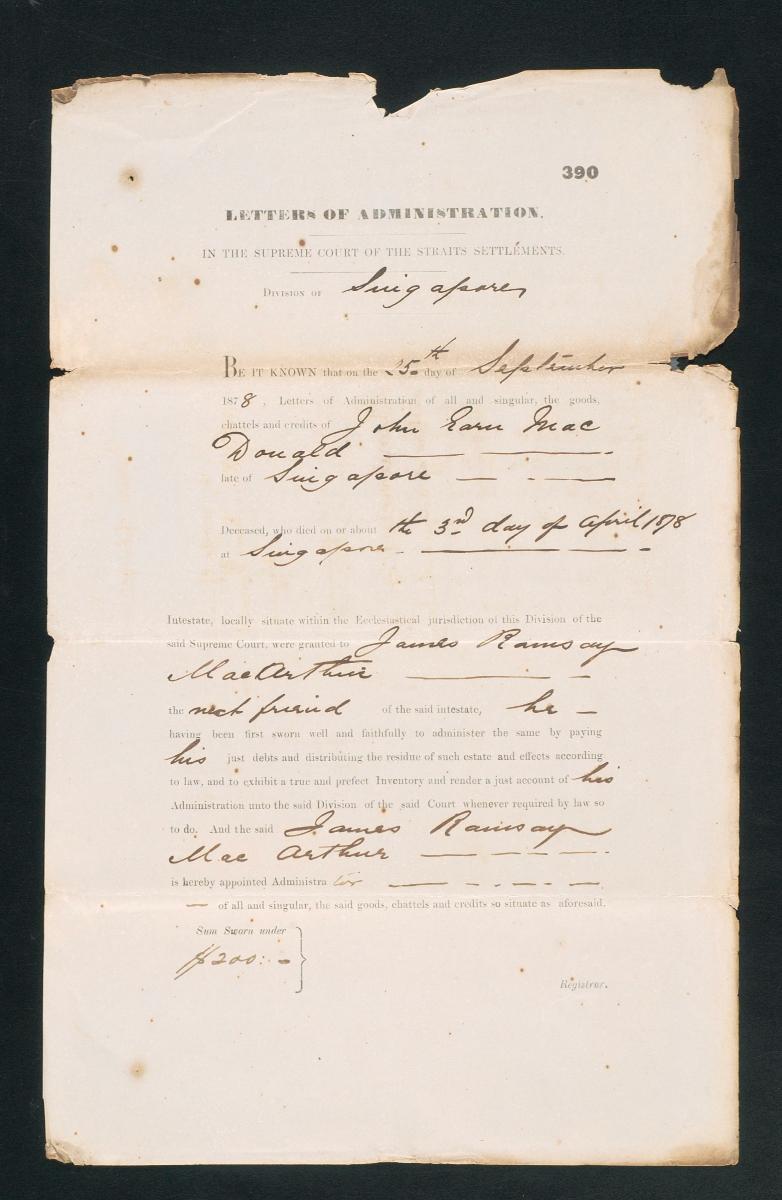 390
LETTERS OF ADMINISTRATION.
IN THE SUPREME COURT OF THE STRAITS SETTLEMENTS.
DIVISION OF Singapore
BE IT KNOWN that on the 25th day of September
1878, Letters of Administration of all and singular, the goods,
chattels and credits of John Earn Mac
Donald
late of Singapore
Deceased, who died on or about the 3rd day of April 1878
at Singapore
Intestate, locally situate within the Ecclestastical jurisdiction of this Division of the
said Supreme Court, were granted to James Ramsay
MacArthur
the next friend of the said intestate, he
having been first sworn well and faithfully to administer the same by paying
his just debts and distributing the residue of such estate and effects according
to law, and to exhibit a true and prefect Inventory and render a just account of his
Administration unto the said Division of the said Court whenever required by law so
to do. And the said James Ramsay
Mac Arthur
is hereby appointed Administrator
of all and singular, the said goods, chattels and credits so situate as aforesaid.
Sum Sworn under
$200:-
Registrar.